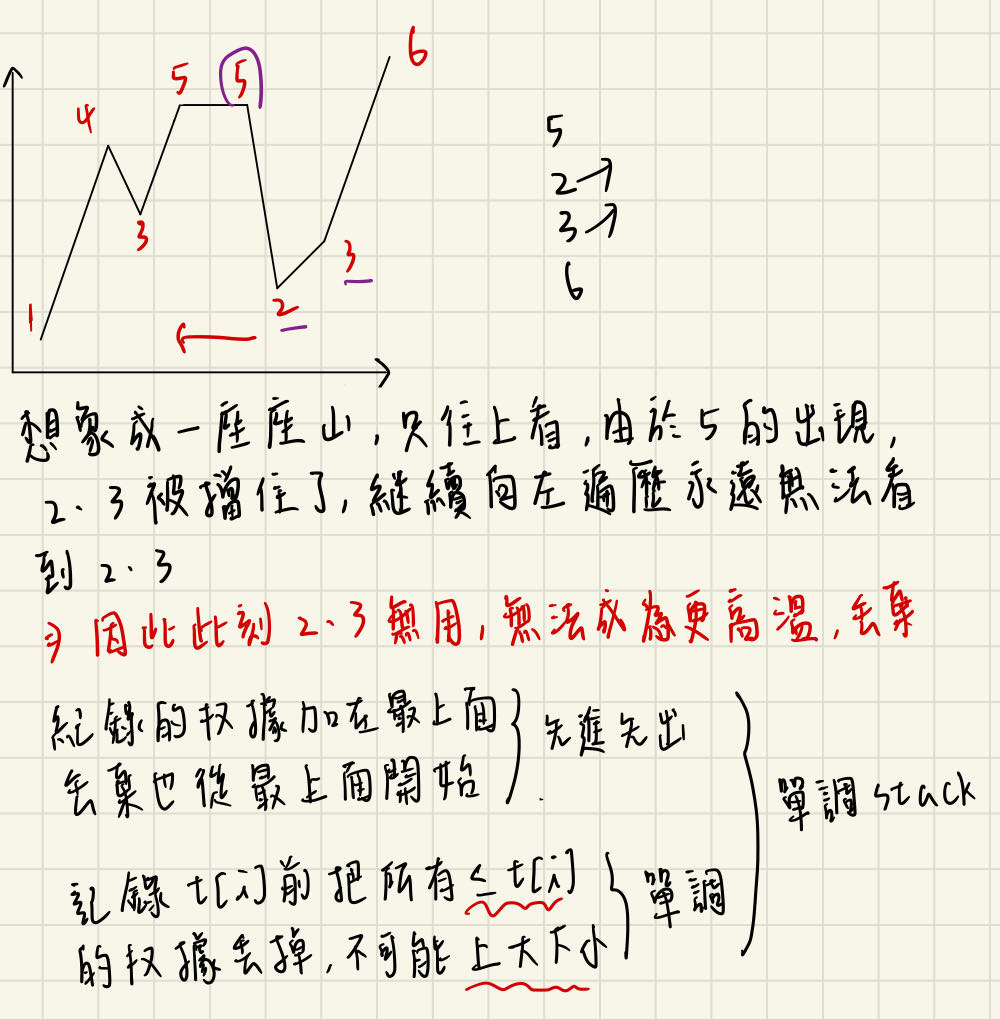 1 4 3 5 5 2 3 6
5
2→
3→
6
想象成一座座山,只往上看,由於5的出現,
2、3被擋住了,繼續向左遍歷永遠無法看
到2、3
⇒因此此刻2、3無用,無法成為更高溫,丟棄
紀錄的权據加在最上面
丟棄也從最上面開始
先進先出
記錄t[i]前把所有≤t[i]
的权據丟掉,不可能上大下小
單調
單調stack